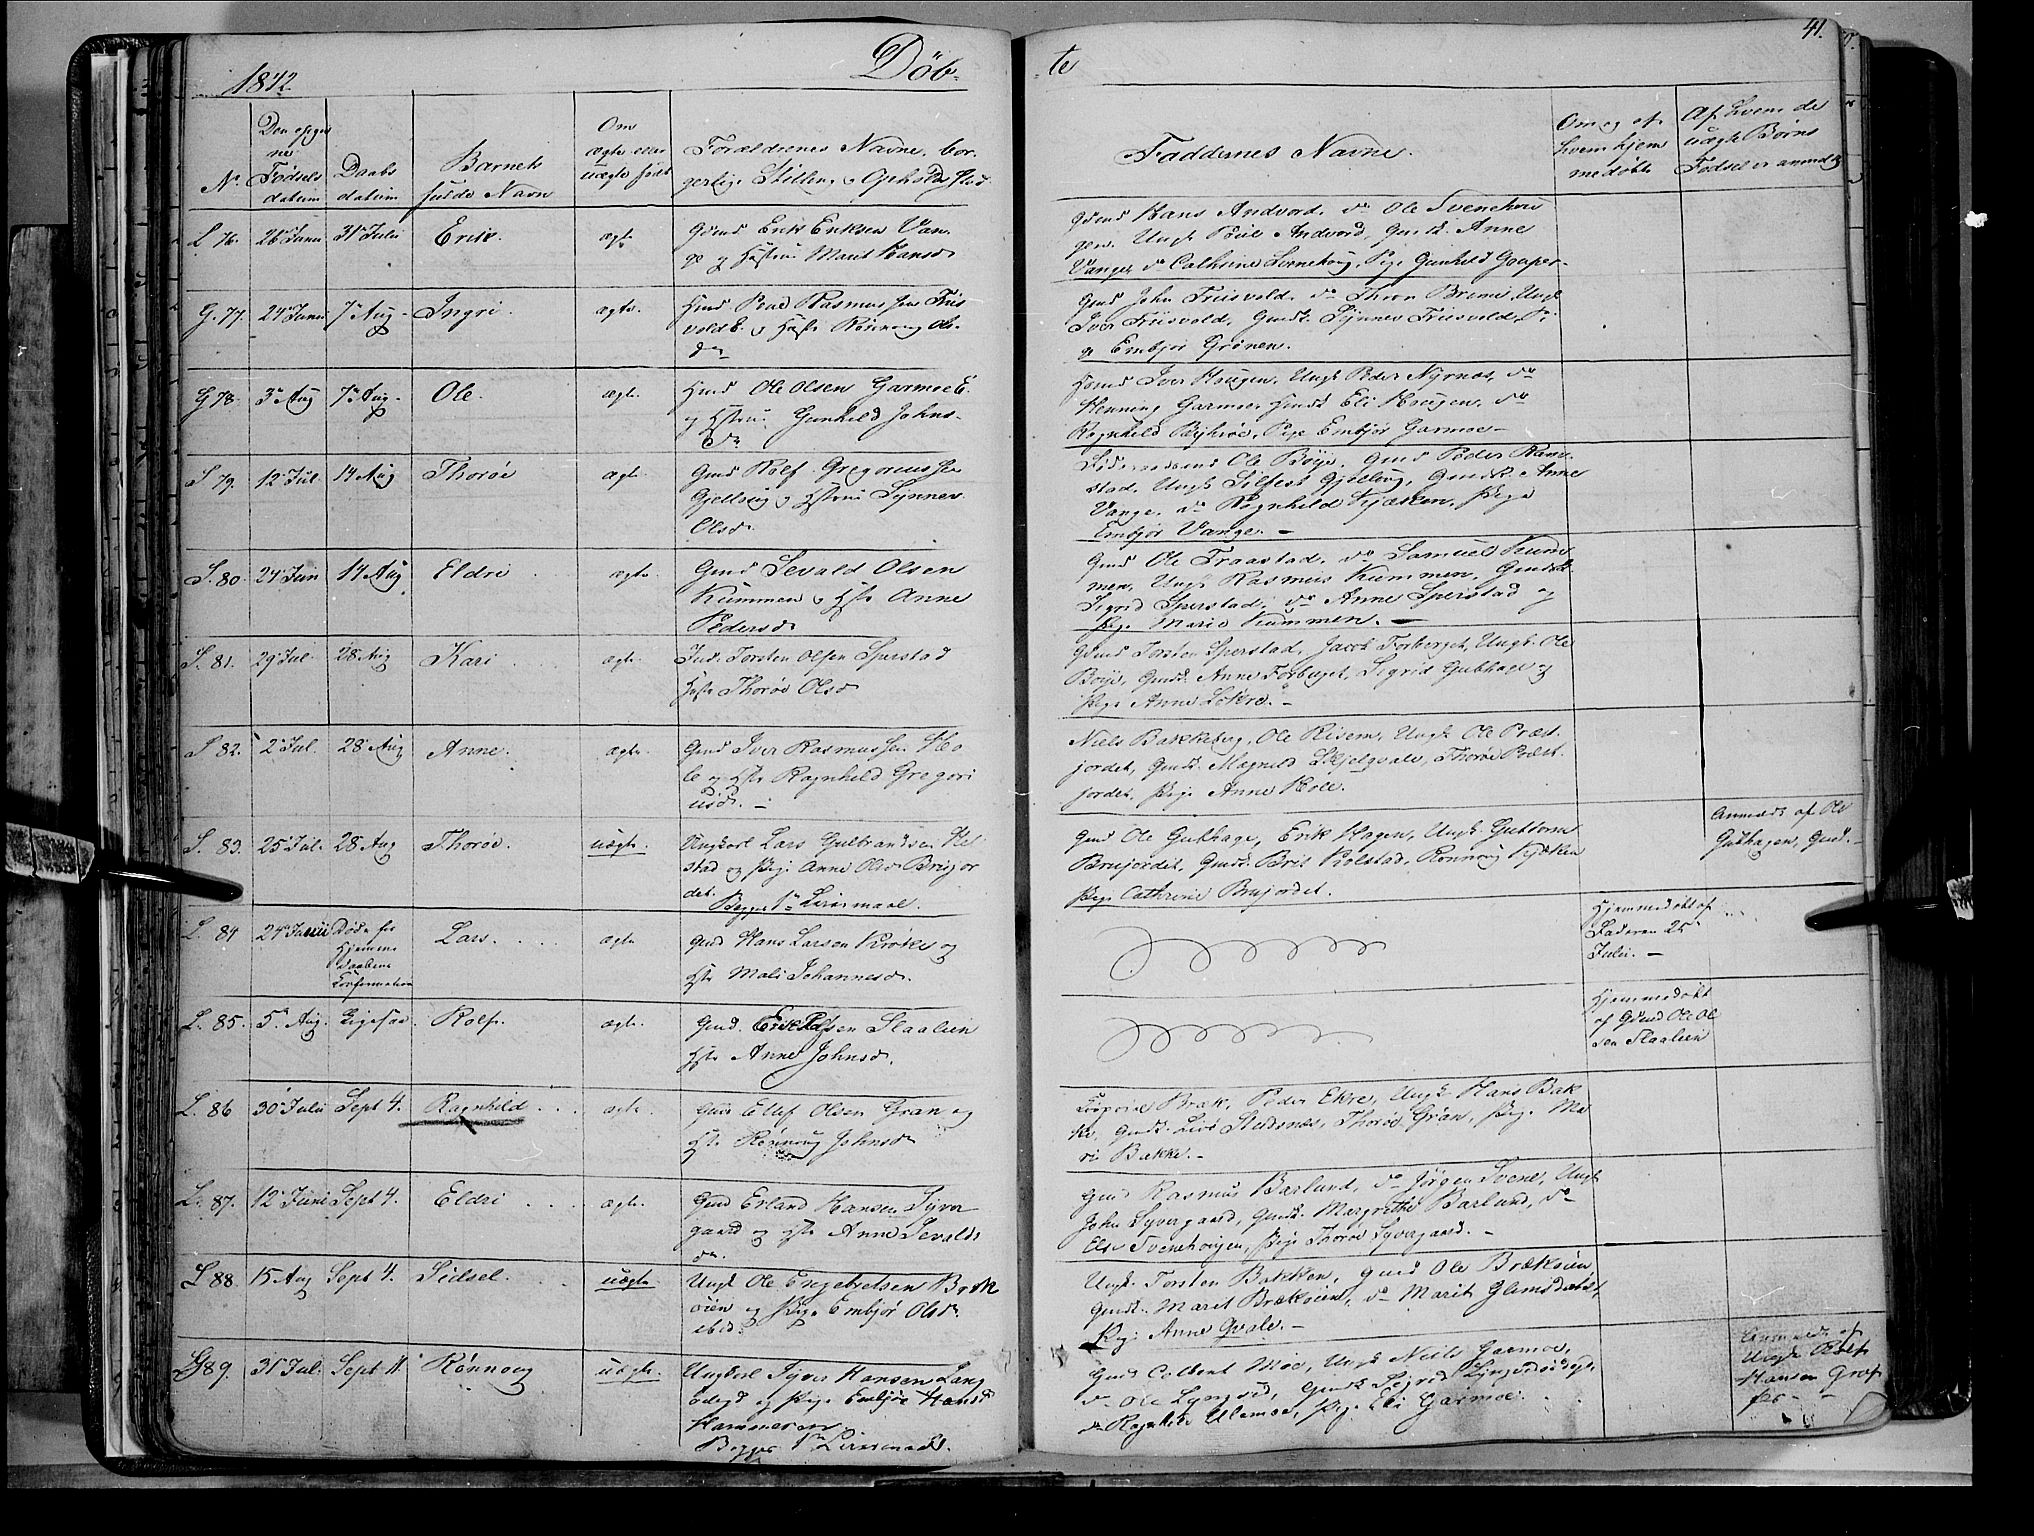 1842.
Döb-
-te
41.
No
Den
ne
Fødsels
datum
Daabs
datum
Barnets
fulde Navn
Om
ægte eller
uægte født
Forældrenes Navne, bor-
gerlige Stilling, Opholds Sted
Faddernes Navne.
Om og af
hvem hjem
medøbt
Af hvem de
uægte Børns
Fødsel er anmeldt
L. 76. 26 Juni 31 Julii Erik. ægte
Gmd Erik Eriksen Van-
ge og Hustrue Marit Hansd
Gmd Hans Andvord, do Ole Svenshou
gen, Ungk Poul Andvord, Gmdk. Anne
Vange, do Cathrine Svenshoug, Pige Gunhild
G. 77. 24 Juni 7 Aug. Ingri. ægte.
Poul Rasmussen Friis
vold E. og Hstr Rønnoug Ols-
dr
Gmd John Friisvold, do Thron Bræmi, Ungk
Iver Friisvold, Gmdk. Synnev Friisvold, Pi
ge Embjør Grönen.
G. 78. 3 Aug 7 Aug. Ole. ægte.
Hmd Ole Olsen Garmoe E.
og Hstrue. Gunhild Johns-
dr
Iver Haugen, Ungk Peder Nyrnæs, do
Henning Garmoe, Hmdk Eli Haugen, do
Ragnhild, Pige Embjør Garmoe-
S 79. 12 Jul. 14 Aug Thorøe ægte.
Gmd Rolf Gregoriussen
og Hstrue Synnev
Olsd.
Ole Böye, Gmd Peder Ram
stad, Ungk, Gmdk. Anne
Vange, do Ragnhild Kjæken, Pige
Embjør Vange. -
S. 80. 24 Juni 14 Aug Eldri ægte.
Gmd Sevald Olsen
Kummen og Hstr Anne
Pedersd.
Gmd Ole Traastad, do Samuel Kum
men, Ungk Rasmus Kummen, Gmdk
Sigrid Sperstad, do Anne Sperstad og
Pige Marie Kummen. -
S. 81. 29 Jul. 28 Aug Kari ægte.
Ind. Torsten Olsen Sperstad
Hstr Thorøe Olsd
Gmd Torsten Sperstad, Jacob Forberget, Ungk. Ole
Böye, Gmdk. Anne Forberget, Sigrid Gubhage og
Pige Anne Løkre. -
S 82. 2 Jul. 28 Aug Anne. ægte.
Gmd Iver Rasmussen Ho
le og Hstr Ragnhild Gregori
usd. -
Niels Bakkeberg, Ole Risem, Ungk Ole Præst-
jordet, Gmdk. Magnild Skjelqvale, Thorøe Præst-
jordet, Pige Anne Hole.
S. 83. 25 Jul. 28 Aug Thorøe. uægte.
Ungkarl Lars Gulbrandsen Kol
stad og Pige Anne Olsd Brujor
det. Begges 1te Leiermaal.
Gmd Ole Gubhage, Erik Hagen, Ungk. Guttorm
Brujordet, Gmdk. Brit Kolstad, Rønnoug Kjæken
Pige Cathrine Brujordet.
Anmeldt af Ole
Gubhagen, Gmd.
L. 84 24 Juni Døde før
Hjemme
daabens
Confirmation
Lars. ægte
Gmd Hans Larsen Krøke og
Hstr Mali Johannesd.
Hjemmedøbt af
Faderen 25
Julii. -
L. 85. 5 Aug. Ligesaa Rolf. ægte.
Gmd. Erik Slaalien
Hstr Anne Johnsd.
Hjemmedøbt
af Gmd Ole Ol
sen Slaalien
L. 86 30 Julii Sept 4. Ragnhild ægte.
Gmd Ellef Olsen Gran og
Hstr Rønnoug Johnsd
Bræk, Peder Ekre, Ungk Hans Bak
ke, Gmdk. Stuesnæs, Thorøe Gran, Pige Ma
ri Bakke. -
L. 87. 12 Juni Sept 4. Eldri ægte.
Gmd Erland Hansen Syver
gaard og Hstr Anne Sevalds
dr.
Gmd Rasmus Barlund, do Jørgen Svene, Ungk
John Syvergaard, Gmdk. Margrethe Barlund, do
Else Svenshougen, Pige Thorøe Syvergaard. -
L 88. 15 Aug Sept 4. Sidsel. uægte
Ungk Ole Engebretsen Bræk
øien og Pige Embjør Olsd.
ibid.
Ungk. Torsten Bakken, Gmd Ole Brækøien
Gmdk. Marit Brækøien, do Marit
Pige Anne Qvale. -
G 89. 31 Jul. Sept 11. Rønnoug uægte.
Ungkarl Syver Hansen
og Pige Embjør Hansd
Hammer
Begges 1te Leiermaal.
Gmd Colbent Moe, Ungk Niels Garmoe,
do Ole, Gmdk Sigrid
do Ragnhild Ulemoe, Pige Eli Garmoe.
Anmeldt af
Ungk
Hansen